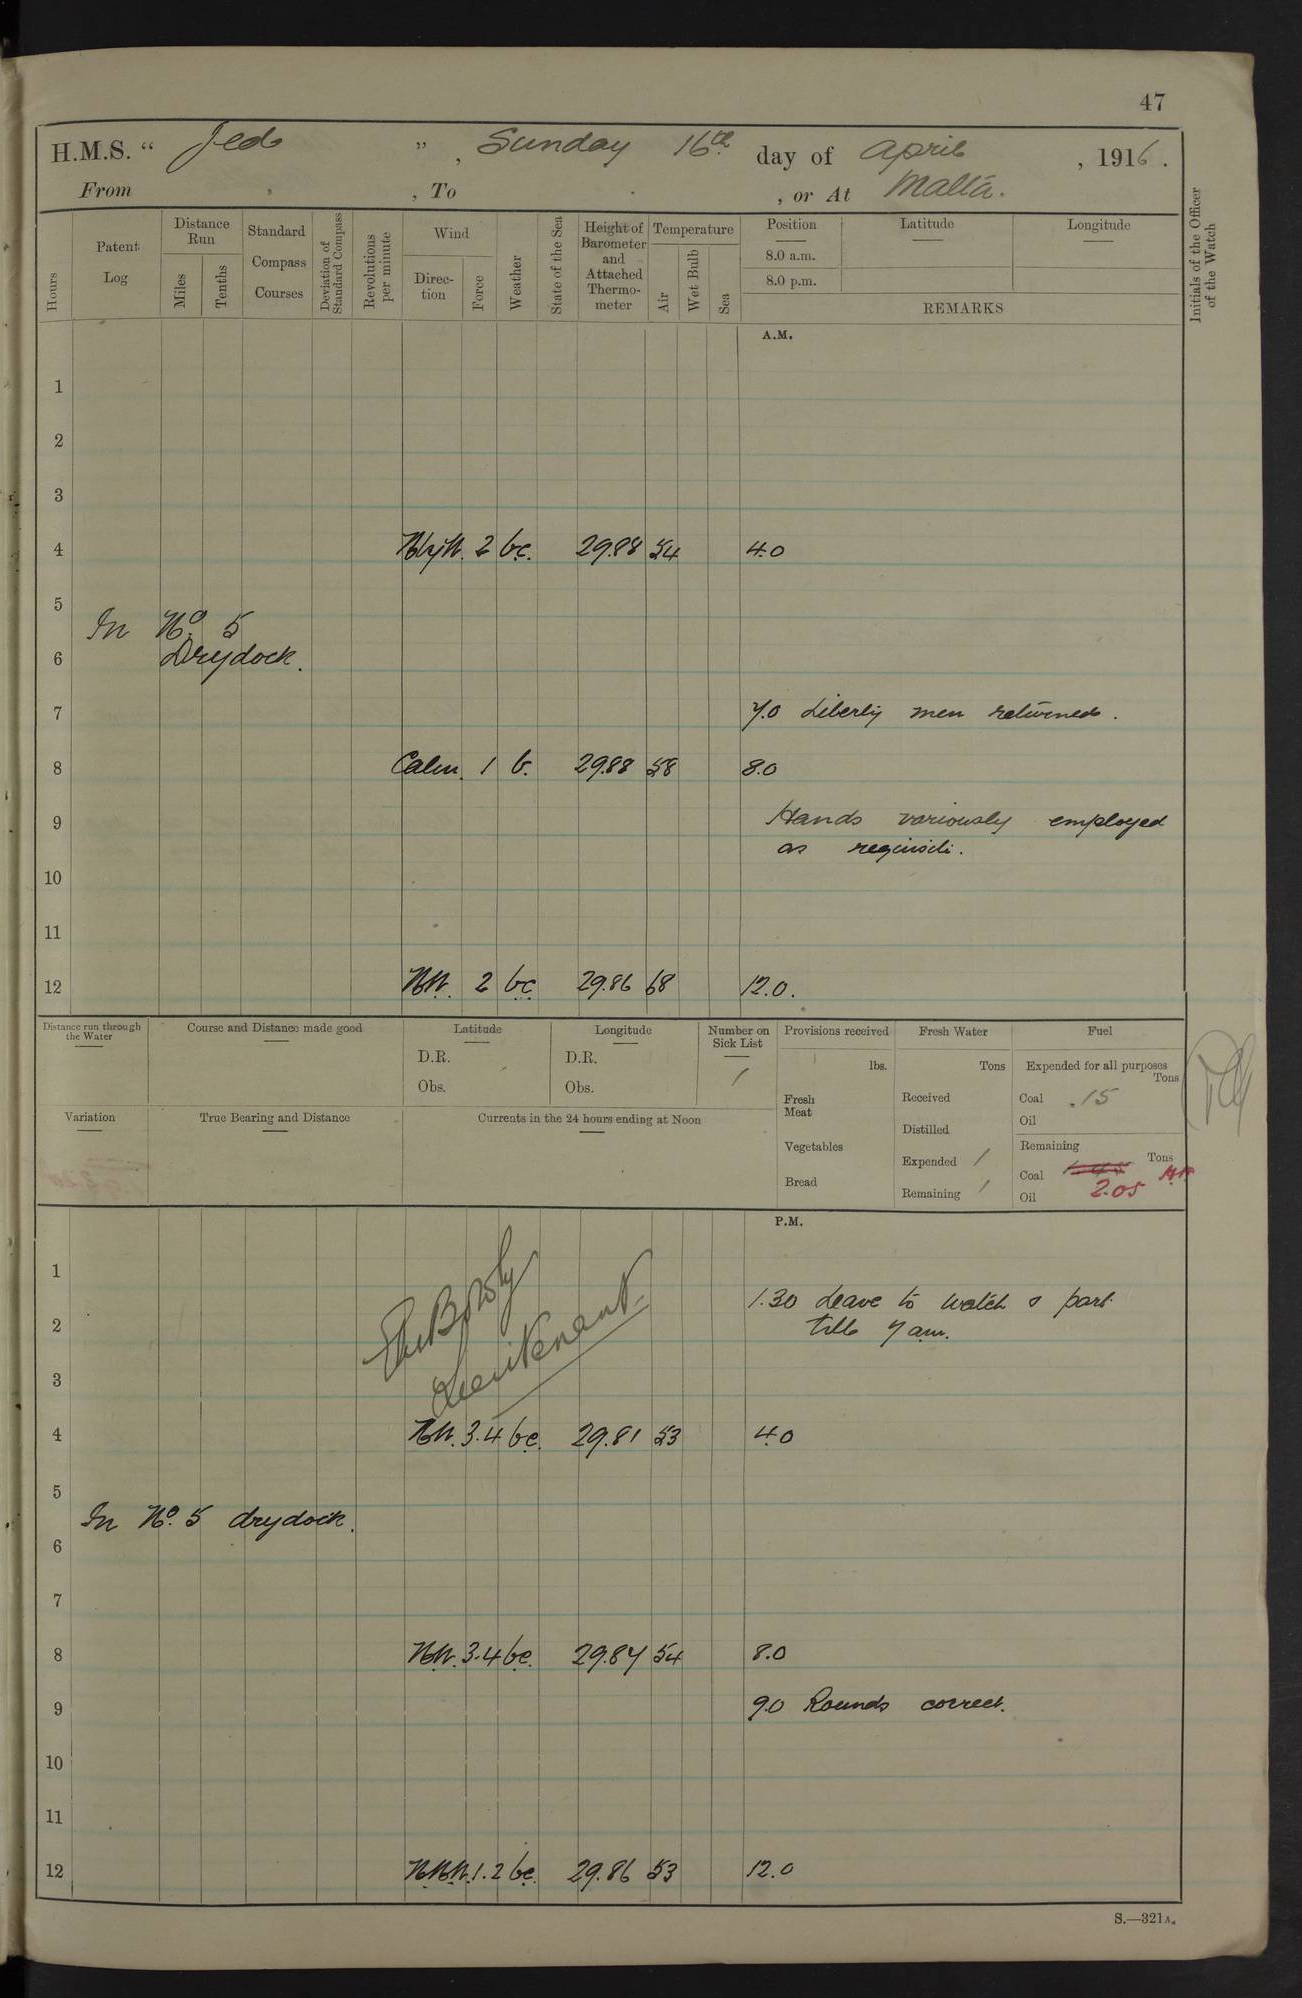 47
H.M.S. “ Jed ” , Sunday 16th day of April , 1916.
From , To , or At Malta.
Hours
Patent Log
Distance Run
Miles
Tenths
Standard Compass Courses
Deviation of Standard Compass
Revolutions per minute
Wind
Direction
Force
Weather
State of the Sea
Height of Barometer and Attached Thermometer
Temperature
Air
Wet Bulb
Sea
Position
Latitude
Longitude
8.0 a.m.
8.0 p.m.
REMARKS
Initials of the Officer of the Watch
A.M.
1
2
3
4 2 bc. 29.88 54 4.0
5
In No. 5
6 Drydock.
7 7.0 Liberty men returned.
8 Calm. 1 b. 29.88 58 8.0
9 Hands variously employed
as requisite.
10
11
12 NW. 2 bc 29.86 68 12.0.
Distance run through the Water
Course and Distance made good
Latitude
D.R.
Obs.
Longitude
D.R.
Obs.
Number on Sick List
1
Provisions received
lbs.
Fresh Meat
Vegetables
Bread
Fresh Water
Tons
Received
Distilled
Expended 1
Remaining 1
Fuel
Expended for all purposes
Tons
Coal .15
Oil
Remaining
Tons
Coal 2.05
Oil
Variation
True Bearing and Distance
Currents in the 24 hours ending at Noon
P.M.
1
1.30 Leave to watch & part
2 till 7 am.
Lieutenant.
3
4 NW. 3.4 bc. 29.81 53 4.0
5
In No. 5 drydock.
6
7
8 NW. 3.4 bc. 29.84 54 8.0
9 9.0 Rounds correct.
10
11
12 NNW. 1.2 bc. 29.86 53 12.0
S.—321A.